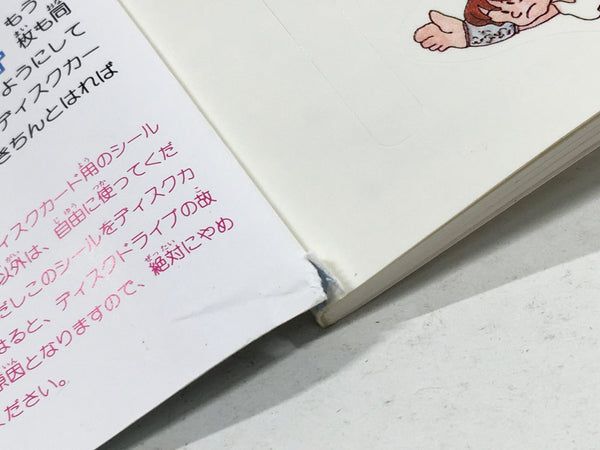 もう
枚も同
ようにして
ディスクカー
きちんとはれば
ィスクカード用のシール
以外は、自由に使ってくだ
だしこのシールをディスクカ
はると、ディスクドライブの故
原因となりますので、絶対にやめ
ください。